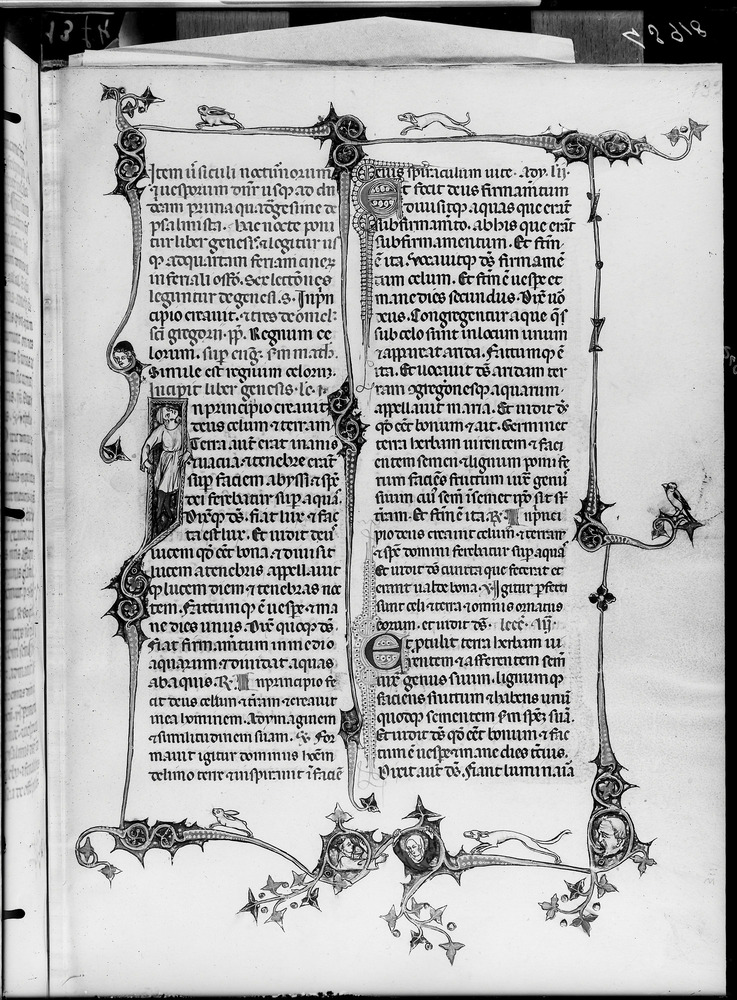 Item si siculi nocturnorum
quesporum dnr usqz ad dn
cam prima quadragesime de
psalmista. hac nocte poni
tur liber genesis. & legitur us
qz ad quartam feriam cinerz
in feriali offo. Sex lectones
leguntur de genesi. s. In pn
cipio creauit. & tres de omel.
sci gregorii. pp. Regnum ce
lorum. sup eug. sm math.
Simile est regnum celorz.
Incipit liber genesis. le. i.
In principio creauit
deus celum & terram
Terra aut erat inanis
& uacua. & tenebre erat
sup faciem abyssi & sps
dei ferebatur sup aquas.
Dixitqz ds. fiat lux. & fac
ta est lux. Et uidit deus
lucem qd eet bona. & diuisit
lucem a tenebris appellauit
qz lucem diem & tenebras noc
tem. Factumqz e uespe & ma
ne dies unus. Dix quoqz ds.
Fiat firmamtum in medio
aquarum & diuidat aquas
ab aquis. R. In principio fe
cit deus celum & tram & creauit
in ea hominem. Ad ymaginem
& similitudinem suam. V. For
mauit igitur dominus hoiem
de limo terre & inspirauit i facie
eius spiraculum uite. Ady. lii.
Et fecit deus firmamtum
diuisitqz aquas que erat
sub firmamto. ab his que erat
sub firmamentum. Et fcm
e ita. Vocauitqz ds firmame
tum celum. Et fcm e uespe et
mane dies secundus. Dix uo
deus. Congregentur aque qs
sub celo sunt in locum unum
& appareat arida. Factumqz e
ita. Et uocauit ds aridam ter
ram ɔgregonesqz aquarum.
appellauit maria. Et uidit ds
qd eet bonum & ait. Germinet
terra herbam uirentem & faci
entem semen & lignum pomife
rum facies fructum iux genus
suum cui sem i semet ipo sit sr
tram. Et fcm e ita. R. In princi
pio deus creauit celum. & terram
& sps domini ferebatur sup aquas
Et uidit ds cuncta que fecerat et
erant ualde bona. V. Igitur pfecti
sunt celi & terra & omnis ornatus
eorum. et uidit ds. lecc. iii.
Et ptulit terra herbam ui
rentem & afferentem sem
iux genus suum. lignumqz
faciens fructum & habens unu
quodqz sementem sm spez sua.
Et uidit ds qd eet bonum. & fac
tum e uespe & mane dies tcius.
Dixit aut ds. Fiant luminaria